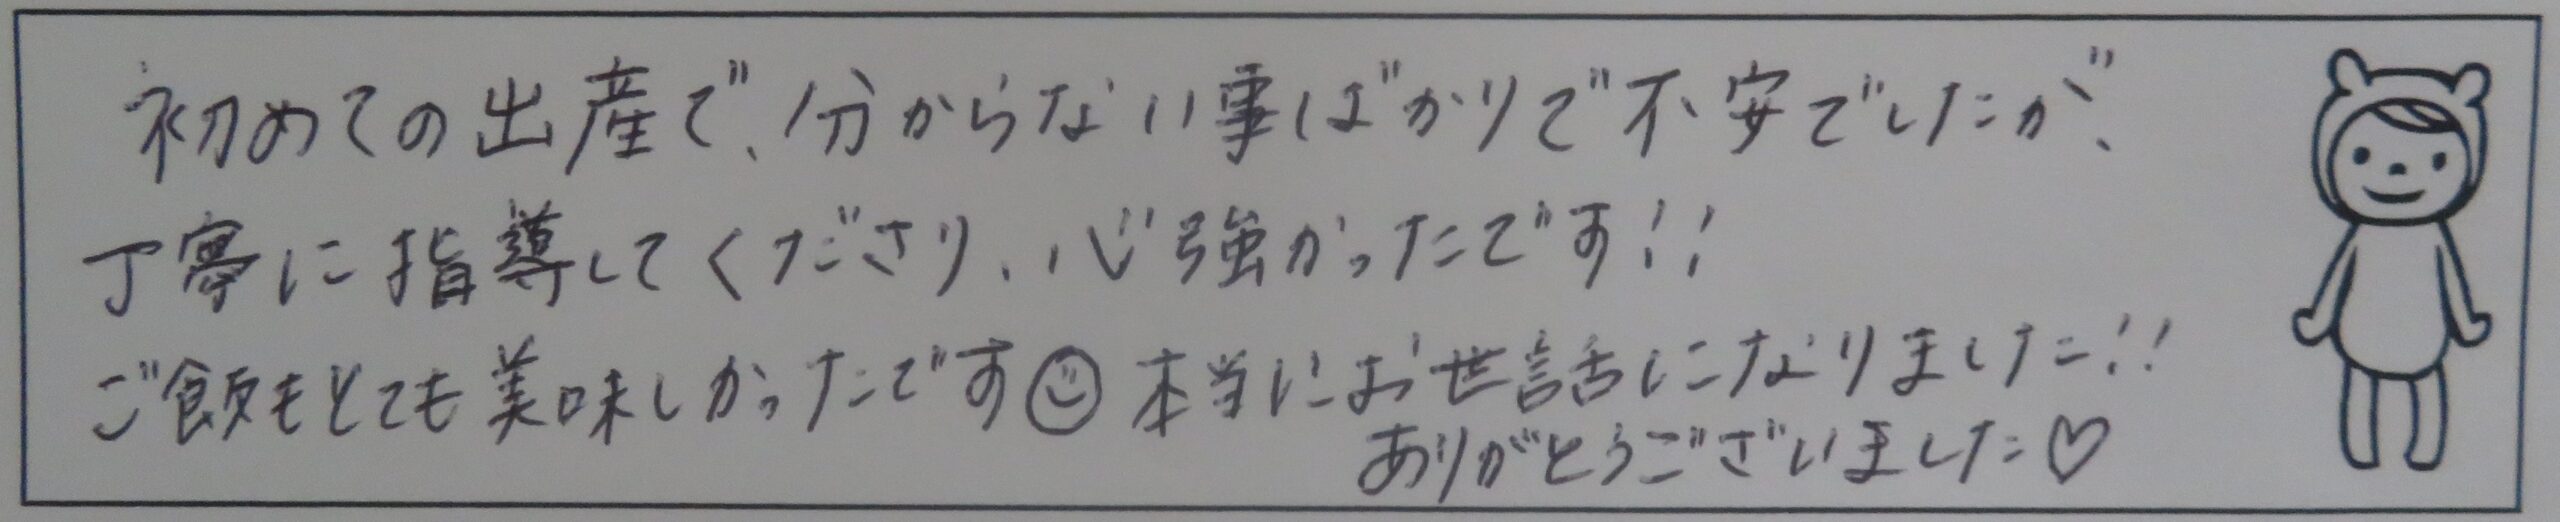 初めての出産で、分からない事ばかりで不安でしたが、
丁寧に指導してくださり、心強かったです!!
ご飯もとても美味しかったです☺本当にお世話になりました!!
ありがとうございました♡